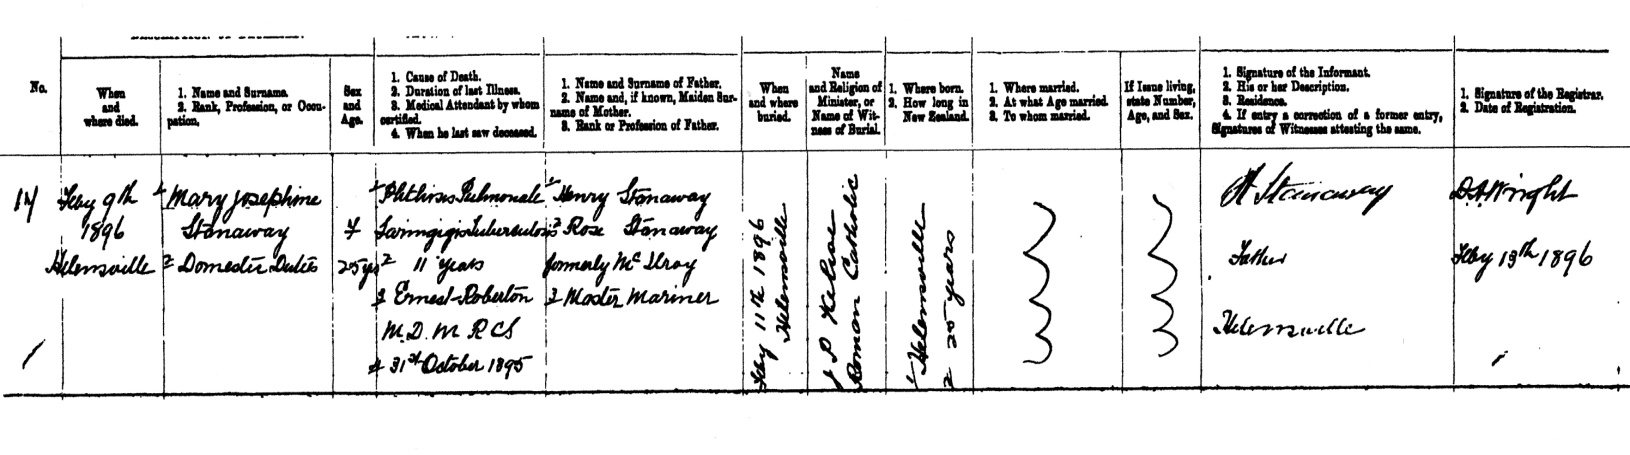 No.
When
and
where died.
1. Name and Surname.
2. Rank, Profession, or Occu-
pation.
Sex
and
Age.
1. Cause of Death.
2. Duration of last Illness.
3. Medical Attendant by whom
certified.
4. When he last saw deceased.
1. Name and Surname of Father.
2. Name and, if known, Maiden Sur-
name of Mother.
3. Rank or Profession of Father.
When
and where
buried.
Name
and Religion of
Minister, or
Name of Wit-
ness of Burial.
1. Where born.
2. How long in
New Zealand.
1. Where married.
2. At what Age married.
3. To whom married.
If Issue living,
state Number,
Age, and Sex.
1. Signature of the Informant.
2. His or her Description.
3. Residence.
4. If entry a correction of a former entry,
Signatures of Witnesses attesting the same.
1. Signature of the Registrar.
2. Date of Registration.
14
Feby 9th
1896
Helensville
1 Mary Josephine
Stanaway
2 Domestic Duties
F
25 yrs
1 Phthisis Pulmonale
2 11 years
3 Ernest Roberton
M.D. M R C S
4 31st October 1895
1 Henry Stanaway
2 Rose Stanaway
formerly McIlroy
3 Master Mariner
Feby 11th 1896
Helensville
Roman Catholic
1 Helensville
2 25 years
H Stanaway
Father
Helensville
D.A. Wright
Feby 13th 1896